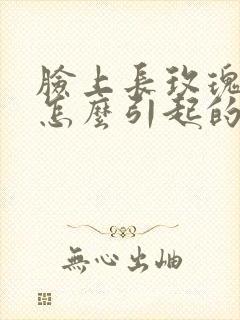 臉上長玫瑰
怎麼引起的
無心出岫